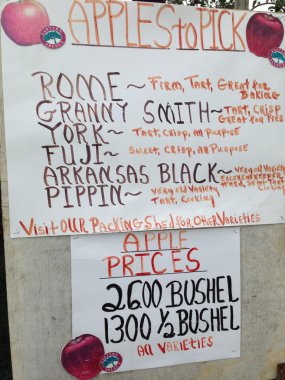 APPLES to PICK
ROME ~ Firm, Tart, Great for Baking
GRANNY SMITH ~ Tart, Crisp Great for Pies
YORK ~ Tart, Crisp, All Purpose
FUJI ~ Sweet, Crisp, All Purpose
ARKANSAS BLACK ~ Very old Variety Excellent Keeper Hard, Semi-Tart Cooking
PIPPIN ~ Very old Variety Tart, Cooking
Visit OUR Packing Shed for Other Varieties
APPLE
PRICES
26.00 BUSHEL
13.00 ½ BUSHEL
All VARIETIES